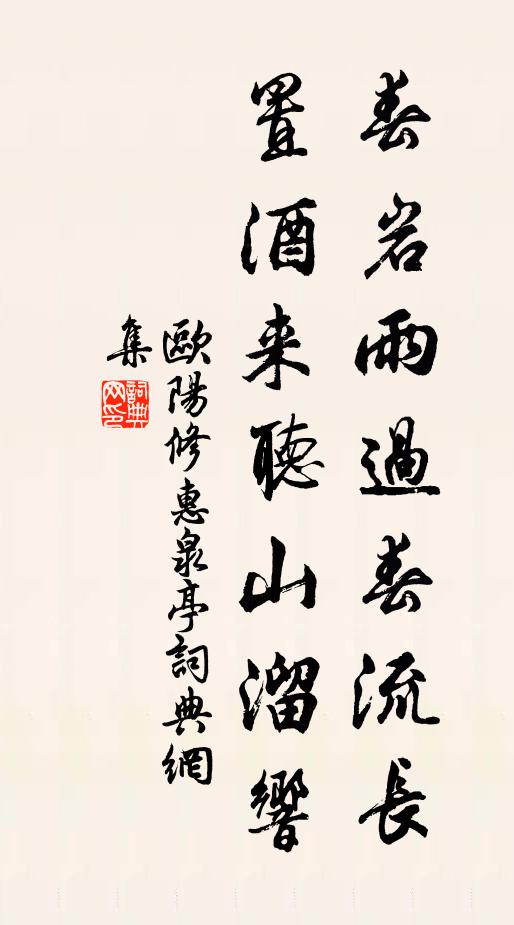 春岩雨過春流長
置酒来聽山溜響
歐陽修惠泉亭詞典網
集
詞典網印